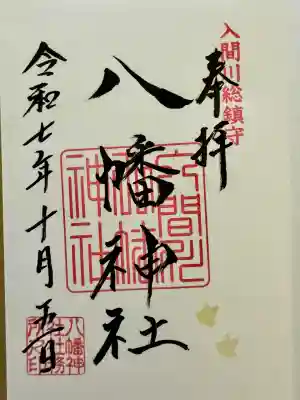 入間川総鎮守
奉拝
八幡神社
令和七年十月五日
八幡神
社社務
所之印